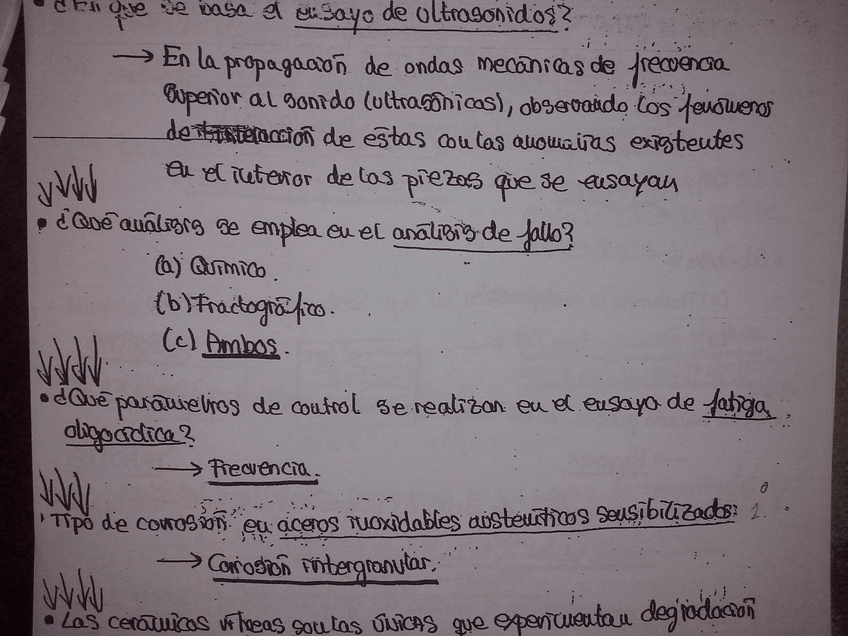 • ¿En que se basa el ensayo de ultrasonidos?
→ En la propagación de ondas mecánicas de frecuencia
superior al sonido (ultrasónicos), observando los fenómenos
de interacción de estas con las anomalías existentes
en el interior de las piezas que se ensayan
• ¿Qué análisis se emplea en el análisis de fallo?
(a) Químico.
(b) Fractográfico.
(c) Ambos.
• ¿Qué parámetros de control se realizan en el ensayo de fatiga
oligocíclica?
→ Frecuencia.
• Tipo de corrosión en aceros inoxidables austeníticos sensibilizados:
→ Corrosión intergranular.
• Las cerámicas vítreas son las únicas que experimentan degradación